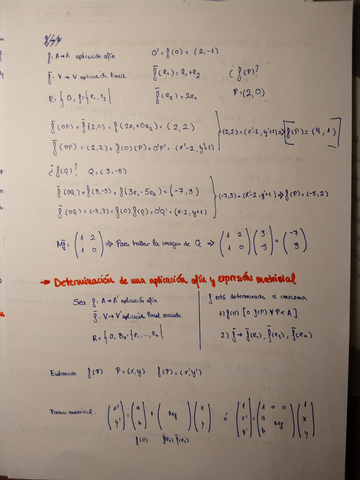 f: A → A aplicación afín    O' = f(O) = (2, -1)
f̄: V → V aplicación lineal    f̄(e₁) = e₁ + e₂    ¿f(P)?
R = {O, {e₁, e₂}}    f̄(e₂) = 2e₁    P = (2, 0)
f̄(OP) = f̄(2,0) = f(2e₁ + 0e₂) = (2, 2)
f̄(OP) = (2,2) = f(O) f(P) = O'P' = (x'-2, y'+1)
(2,2) = (x'-2, y'+1) ⇒ f(P) = (4, 1)
¿f(Q)?    Q = (3, -5)
f̄(OQ) = f̄(3,-5) = f(3e₁ - 5e₂) = (-7, 3)
f̄(OQ) = (-7,3) = f(O) f(Q) = O'Q' = (x'-2, y'+1)
(-7,3) = (x'-2, y'+1) ⇒ f(P) = (-5, 2)
Mf̄ = (1 2 / 1 0) ⇒ Para hallar la imagen de Q ⇒ (1 2 / 1 0) (3 / -5) = (-7 / 3)
→ Determinación de una aplicación afín y expresión matricial
Sea f: A → A' aplicación afín
f̄: V → V' aplicación lineal asociada
R = {O, B = {e₁, ..., eₙ}}
f está determinada si conocemos
1) f(O) [O f(P) ∀ P ∈ A]
2) f̄ → f̄(e₁), f̄(e₂), f̄(eₙ)
Entonces f(P)    P = (x, y)    f(P) = (x', y')
Forma matricial: (x' / y') = (a / b) + (Mf) (x / y)    ó    (1 / x' / y') = (1 0 0 / a / b Mf) (1 / x / y)
f(O)    f̄(e₁) f̄(e₂)